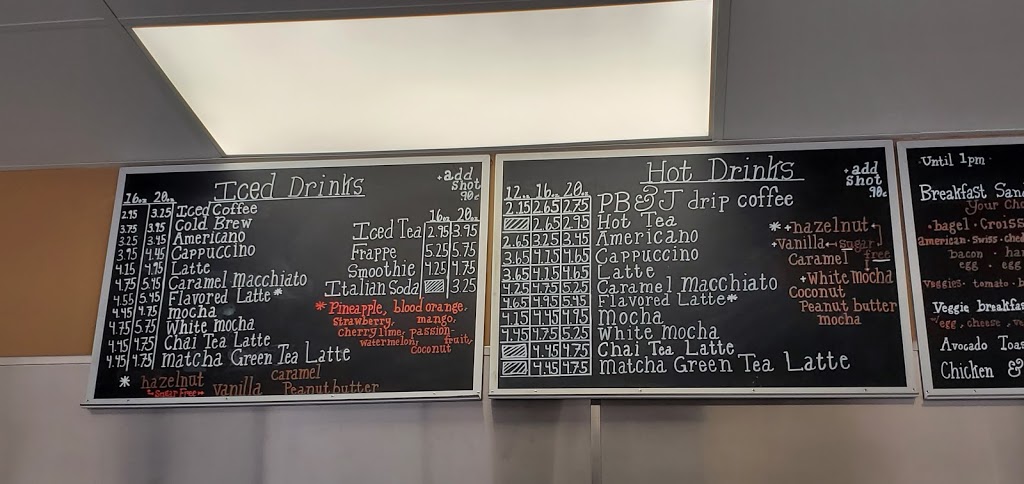 Iced Drinks
+add shot 90¢
16oz 20oz
2.95 3.25 Iced Coffee
3.75 3.95 Cold Brew
3.25 3.45 Americano
3.65 Cappuccino
4.15 4.95 Latte
4.75 5.45 Caramel Macchiato
4.55 5.45 Flavored Latte*
4.45 4.75 mocha
4.75 5.75 White mocha
4.45 4.75 Chai Tea Latte
4.45 4.75 matcha Green Tea Latte
16oz 20oz
Iced Tea 2.95 3.45
Frappe 5.25 5.75
Smoothie 4.25 4.75
Italian Soda 3.25
* Pineapple, blood orange,
Strawberry, mango,
cherry lime, passion-
watermelon, fruit,
coconut
* hazelnut caramel
Sugar Free vanilla Peanutbutter
Hot Drinks
+add shot 90¢
12oz 16oz 20oz
2.15 2.65 2.75 PB&J drip coffee
2.65 2.95 Hot Tea
2.65 3.25 3.45 Americano
3.65 4.15 4.65 Cappuccino
3.65 4.15 4.65 Latte
4.25 4.75 5.25 Caramel Macchiato
4.65 4.95 5.45 Flavored Latte*
4.15 4.45 4.95 Mocha
4.45 4.75 5.25 White mocha
4.45 4.75 Chai Tea Latte
4.45 4.75 Matcha Green Tea Latte
*+hazelnut
+vanilla sugar free
Caramel
+White mocha
Coconut
Peanut butter
mocha
Until 1pm
Breakfast San
Your Cho
bagel · Croiss
american · Swiss · ched
bacon · ha
egg · egg
Veggies · tomato · b
Veggie breakfas
egg, cheese, ve
Avocado Toas
Chicken &